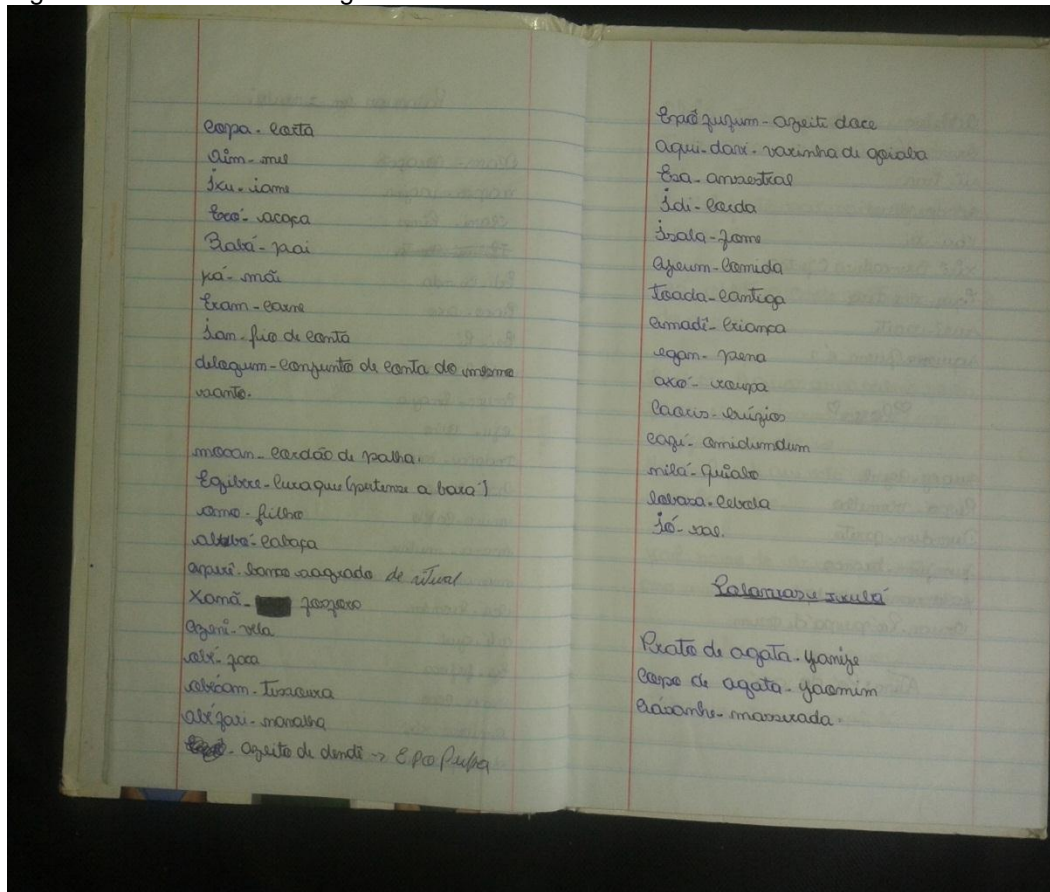 copa - costa
Oim - mel
Iku - iame
Ecó - acaça
Babá - pai
yá - mãe
Eram - carne
Ian - fio de conta
delogum - conjunto de conta do mesmo
santo.
mocan - cordão de palha.
amo - filho
cabaça
aperê - banco sagrado de ritual
Xamã -
vela
obé - faca
obécam - tesoura
obéfari - navalha
- azeite de dendê -> Epo Pupa
azeite doce
aqui-davi - varinha de goiaba
Esa - ancestral
Idi - corda
Isala - fome
Ajeum - comida
toada - cantiga
amadê - criança
egam - pena
axó - roupa
caoris - buízios
cagé - amidumdum
milá - quiabo
labasa - cebola
Ió - sal.
Prato de agata - yanije
Copo de agata - yaomim
Eásanhe - masserada.